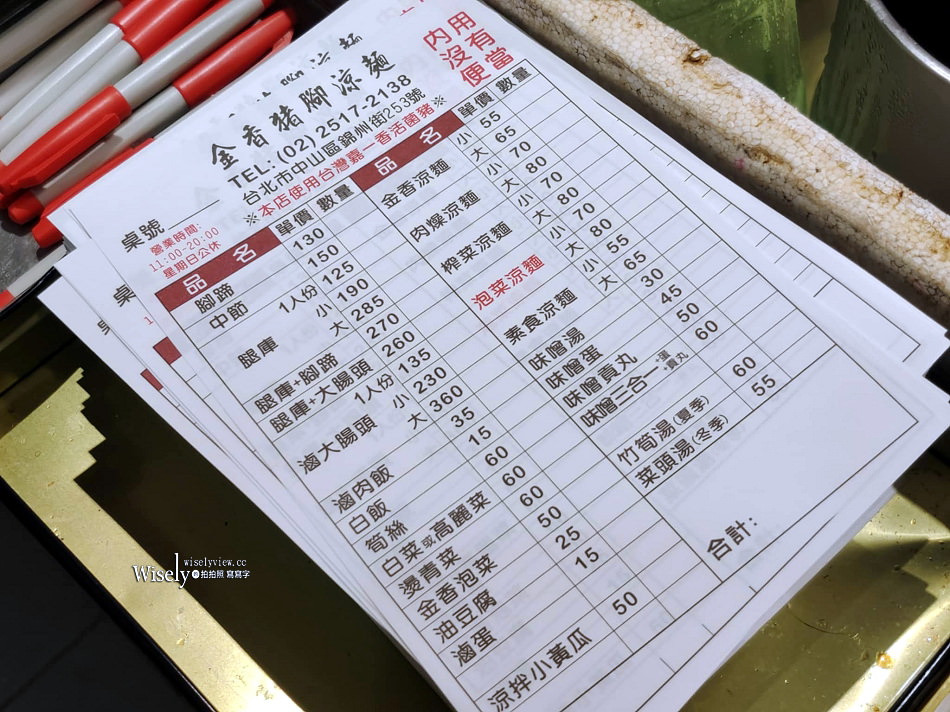 內用
沒有
便當
金香豬腳涼麵
TEL: (02) 2517-2138
台北市中山區錦州街253號
※本店使用台灣嘉一香活菌豬※
桌號
營業時間:
11:00-20:00
星期日公休
品名 單價 數量
腳蹄 130
中節 150
腿庫 1人份 125
小 190
大 285
腿庫+腳蹄 270
腿庫+大腸頭 260
滷大腸頭 1人份 135
小 230
大 360
滷肉飯 35
白飯 15
筍絲 60
白菜或高麗菜 60
燙青菜 60
金香泡菜 50
油豆腐 25
滷蛋 15
涼拌小黃瓜 50
品名 單價 數量
金香涼麵 小 55
大 65
肉燥涼麵 小 70
大 80
榨菜涼麵 小 70
大 80
泡菜涼麵 小 70
大 80
素食涼麵 小 55
大 65
味噌湯 30
味噌蛋 45
味噌貢丸 50
味噌三合一+蛋+貢丸 60
竹筍湯(夏季) 60
菜頭湯(冬季) 55
合計:
wiselyview.cc
Wisely的拍拍照寫寫字